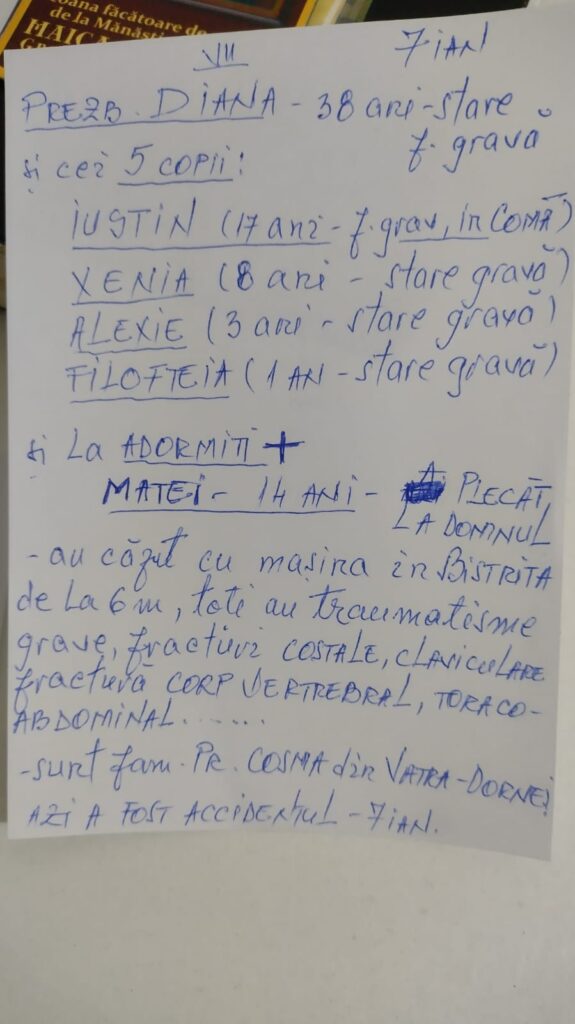 oana făcătoare de
de la Mănăsti
MAICA
VII
7 IAN
PREZB. DIANA - 38 ani - stare
f. gravă
și cei 5 COPII:
IUSTIN (17 ani - f. grav, în COMĂ)
XENIA (8 ani - stare gravă)
ALEXIE (3 ani - stare gravă)
FILOFTEIA (1 AN - stare gravă)
și La ADORMIȚI +
MATEI - 14 ANI - A PLECAT
LA DOMNUL
- au căzut cu mașina in BISTRITA
de La 6 m, toti au traumatisme
grave, fracturi COSTALE, CLAVICULARE
fractură CORP VERTREBRAL, TORACO-
ABDOMINAL.......
- sunt fam. PR. COSMA din VATRA-DORNEI
AZI A FOST ACCIDENTUL - 7 IAN.